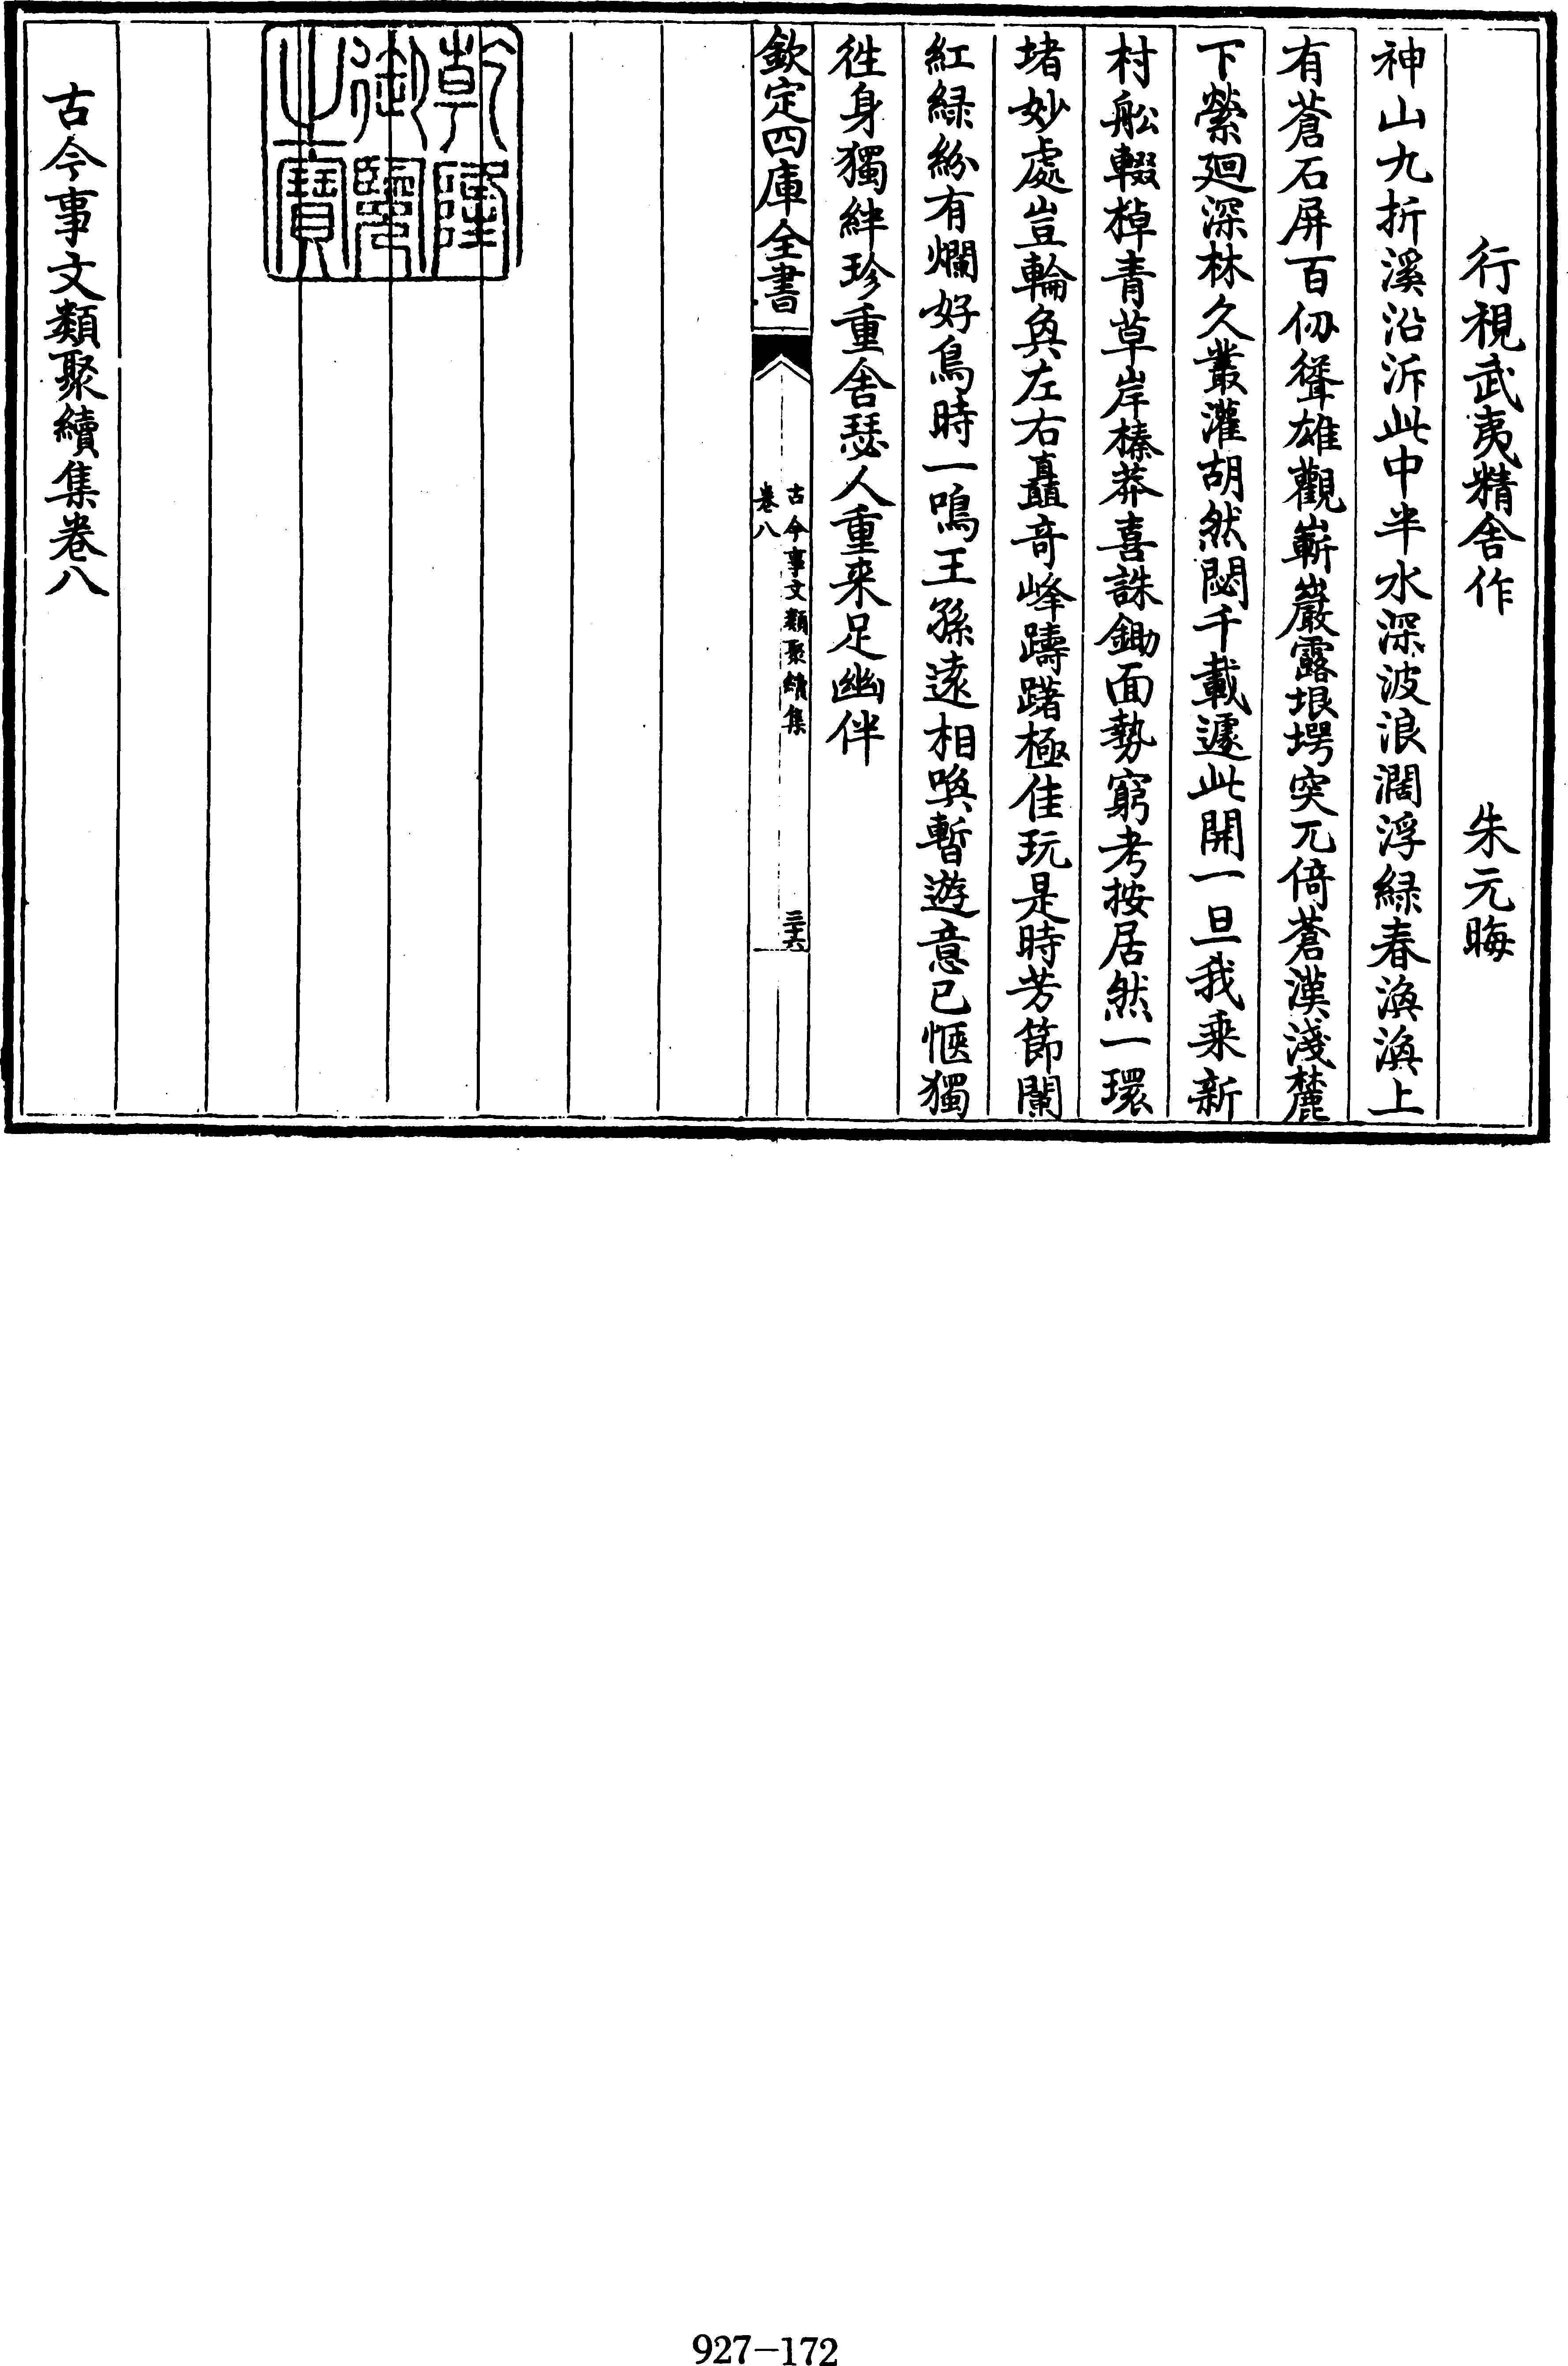 行視武夷精舍作　朱元晦
神山九折溪沿泝此中半水深波浪濶浮緑春渙渙上
有蒼石屏百仞聳雄觀嶄巖露垠堮突兀倚蒼漢淺麓
下縈廻深林久叢灌胡然閟千載遽此開一旦我乗新
村舩輟棹青草岸榛莽喜誅鋤面勢窮考按居然一環
堵妙處豈輪奐左右矗竒峰躊躇極佳玩是時芳節闌
紅緑紛有爛好鳥時一鳴王孫逺相喚暫遊意已愜獨
徃身獨絆珍重舍瑟人重来足幽伴
欽定四庫全書
古今事文類聚續集
卷八
三十六
乾隆御覽之寶
古今事文類聚續集卷八
927-172